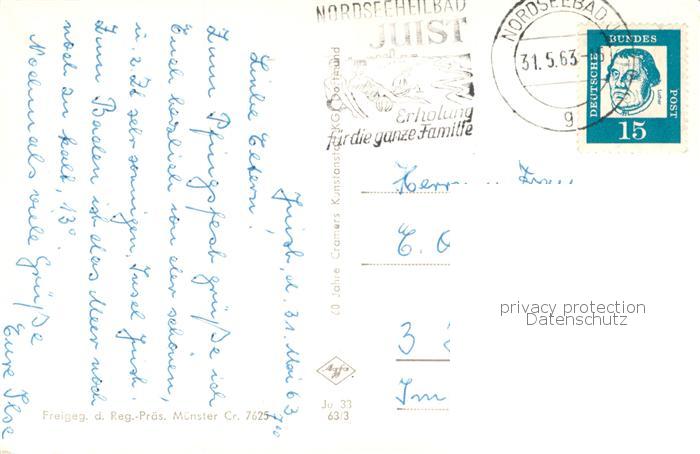 Juist, d. 31. Mai 63
Liebe Eltern!
Zum Pfingstfest grüße ich
Euch herzlich von der schönen,
u. z. Zt sehr sonnigen, Insel Juist.
Zum Baden ist das Meer noch
noch zu kalt, 13°.
Nochmals viele Grüße
Eure Ilse
NORDSEEHEILBAD
JUIST
Erholung
für die ganze Familie
NORDSEEBAD
31.5.63
g
DEUTSCHE
BUNDES
POST
Luther
15
60 Jahre Cramers Kunstanstalt KG, Dortmund
Herrn
3
Im
privacy protection
Datenschutz
Agfa
Freigeg. d. Reg.-Präs. Münster Cr. 7625
Ju 33
63/3